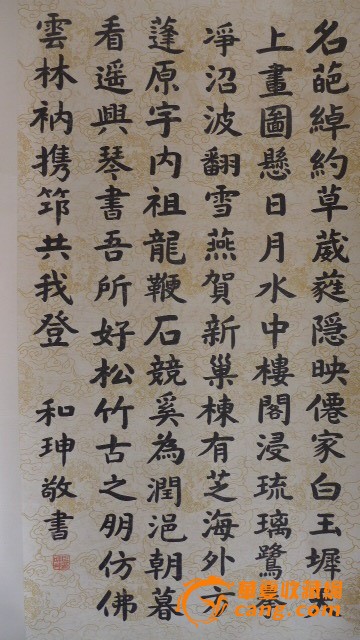 名葩綽約草葳蕤隐映僊家白玉墀
上畫圖懸日月水中樓閣浸琉璃鷺
凈沼波翻雪燕賀新巢棟有芝海外方
蓬原宇内祖龍鞭石競奚為潤浥朝暮
看遥興琴書吾所好松竹古之朋仿佛
雲林衲携筇共我登
和珅敬書
華夏收藏網
cang.com